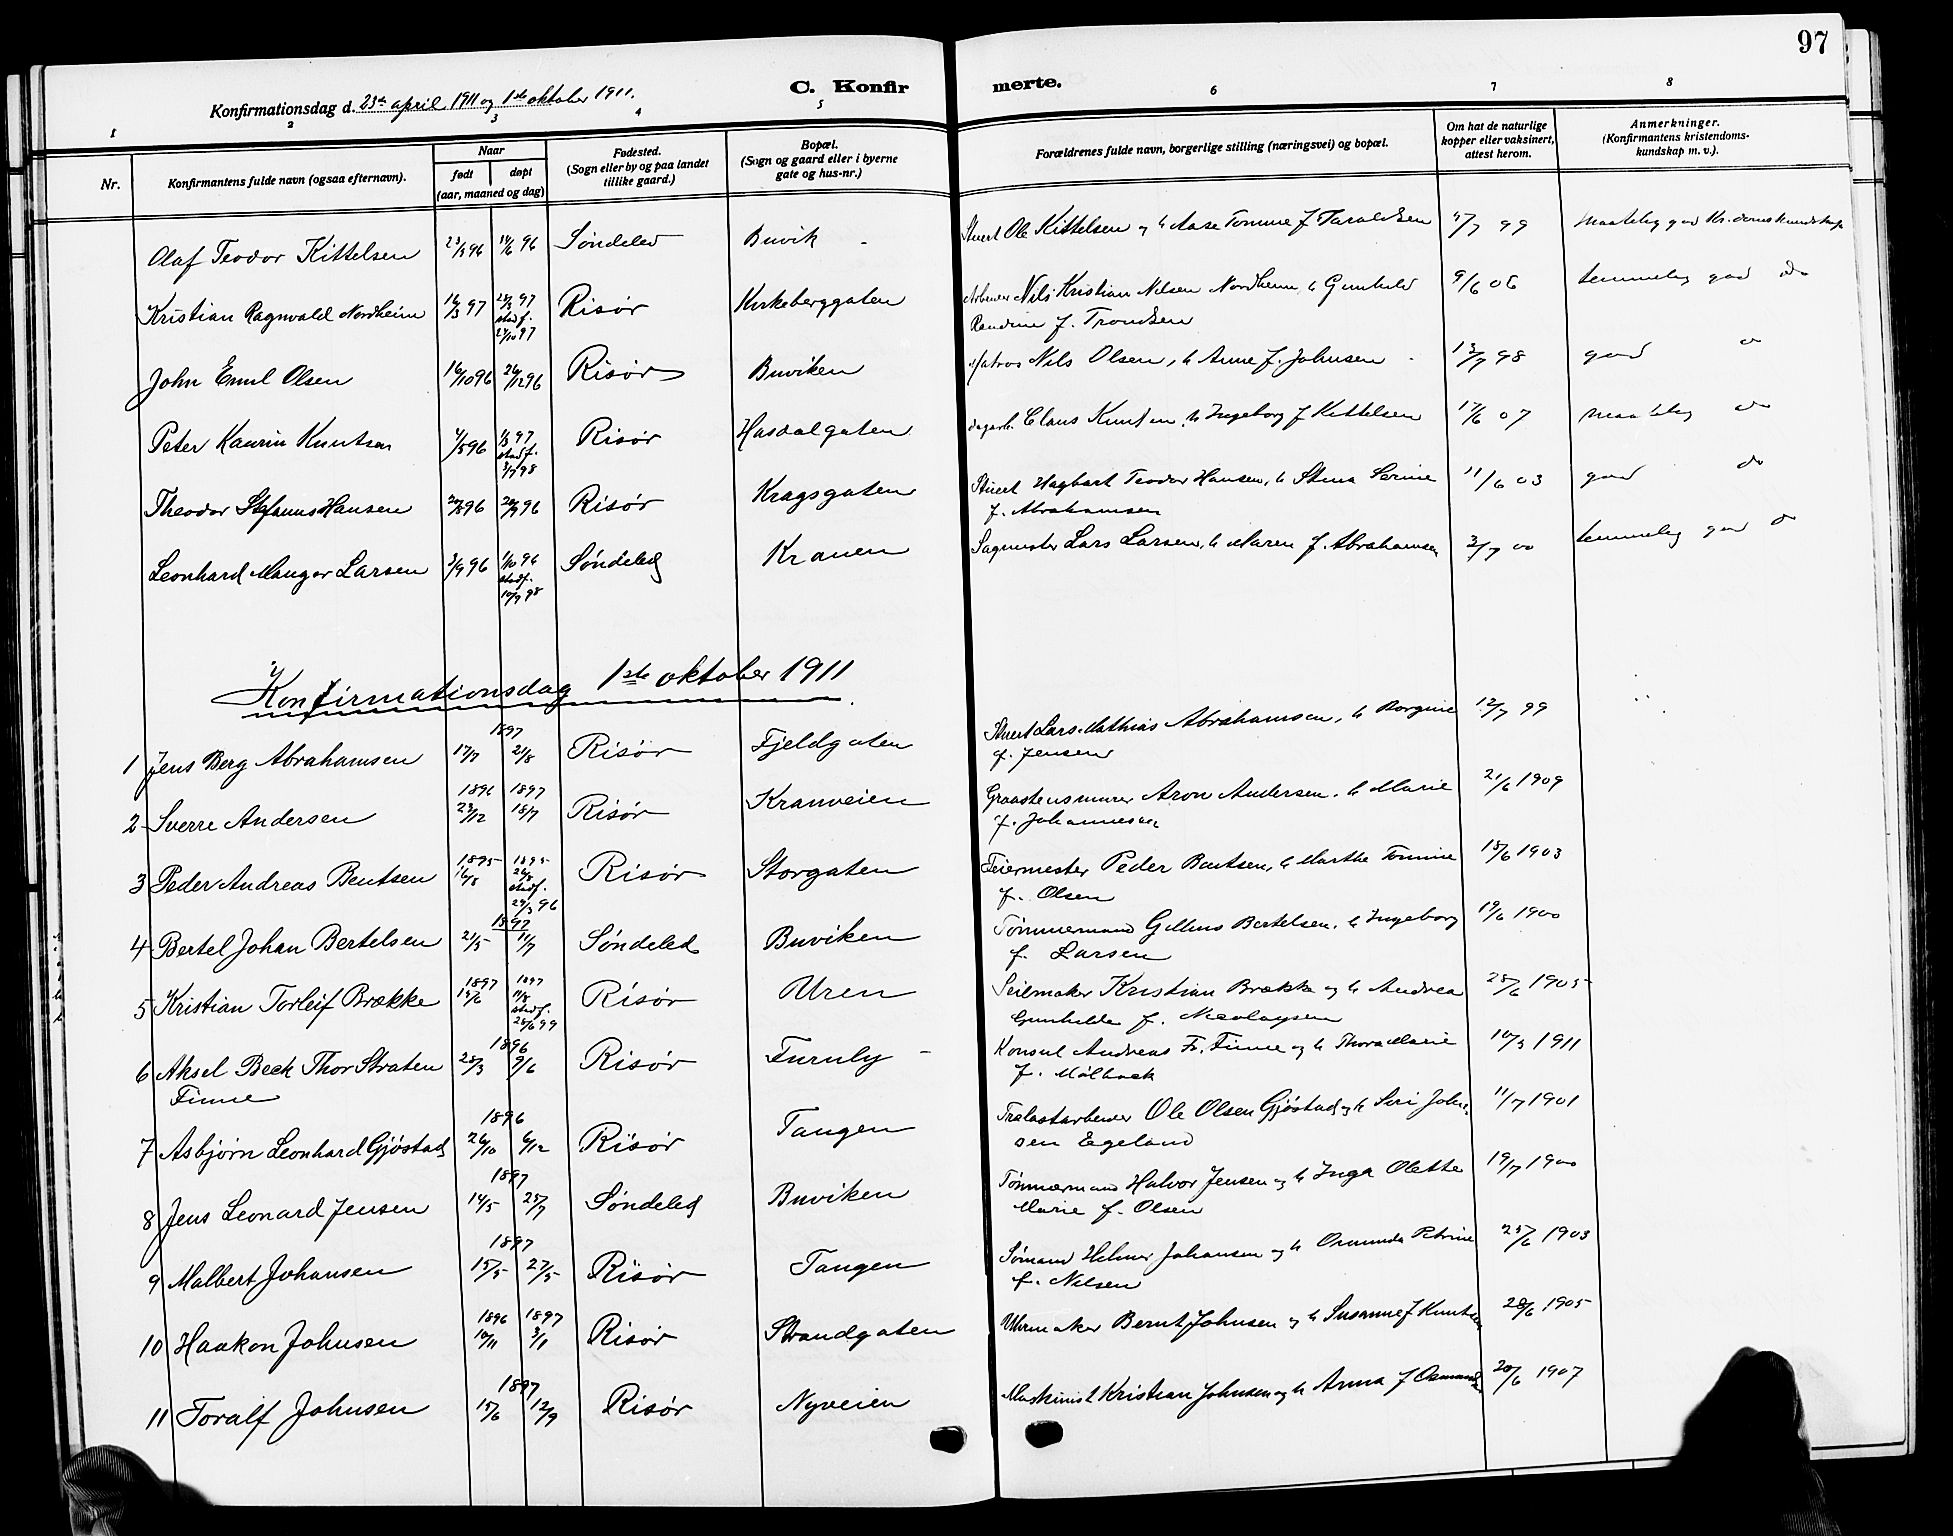 97
Konfirmationsdag d. 23de april 1911 og 1ste oktober 1911.
C. Konfirmerte.
1 2 3 4 5 6 7 8
Nr. Konfirmantens fulde navn (ogsaa efternavn). Naar født døpt (aar, maaned og dag) Fødested. (Sogn eller by og paa landet tillike gaard.) Bopæl. (Sogn og gaard eller i byerne gate og hus-nr.) Forældrenes fulde navn, borgerlige stilling (næringsvei) og bopæl. Om hat de naturlige kopper eller vaksinert, attest herom. Anmerkninger. (Konfirmantens kristendoms-kundskap m. v.).
Olaf Teodor Kittelsen 23/3 96 14/6 96 Søndeled Buvik Stuert Ole Kittelsen og h Aase Tomine f Taraldsen /7 99 maatelig god Kr.domskundskap
Kristian Ragnvald Nordheim 16/3 97 28/3 97 stadf. 24/10 97 Risør Kirkeberggaten Arbeider Nils Kristian Nilsen Nordheim, h Gunhild 9/6 06 temmelig god do
Randine f. Trondsen
John Emil Olsen 16/10 96 26/12 96 Risør Buviken Matros Nils Olsen, h Anne f. Johnsen 13/7 98 god do
Peter Kaurin Knutsen /8 96 1/3 97 stadf. 3/7 98 Risør Hasdalgaten dagarb. Claus Knutsen, h Ingeborg f Kittelsen 17/6 07 maatelig do
Theodor Stefanus Hansen 96 96 Risør Kragsgaten Stuert Hagbart Teodor Hansen, h Stina Serine 11/6 03 god do
f. Abrahamsen
Leonhard Mangor Larsen /9 96 1/10 96 stadf. 10/9 98 Søndeled Kranen Sagmester Lars Larsen, h Maren f. Abrahamsen 3/7 00 temmelig god do
Konfirmationsdag 1ste oktober 1911
1 Jens Berg Abrahamsen 1897 17/7 21/8 Risør Fjeldgaten Stuert Lars Mathias Abrahamsen, h Borgine 12/7 99
f. Jensen
2 Sverre Andersen 1896 23/12 1897 18/7 Risør Kranveien Graastensmurer Aron Andersen, h Marie 21/6 1909
f. Johannesen
3 Peder Andreas Bentsen 1895 16/8 1895 26/8 stadf. 29/3 96 Risør Storgaten Feiermester Peder Bentsen, h Marthe Tomine 15/6 1903
f. Olsen
4 Bertel Johan Bertelsen 1897 2/5 11/7 Søndeled Buviken Tømmermand Gellius Bertelsen, h Ingeborg 19/6 1900
f. Larsen
5 Kristian Torleif Brække 1897 14/6 1897 11/8 stadf. 25/6 99 Risør Uren Seilmaker Kristian Brække og h Andrea 28/6 1905
Gunhilda f. Nicolaysen
6 Aksel Beck Thor Straten 1896 28/3 9/6 Risør Furuly Konsul Andreas Fr. Finne og h Thora Marie 10/3 1911
Finne f. Mølbach
7 Asbjørn Leonhard Gjøstad 1896 26/10 6/12 Risør Tangen Trælastarbeider Ole Olsen Gjøstad og h Siri John- 11/7 1901
sen Egeland
8 Jens Leonard Jensen 1897 14/5 25/7 Søndeled Buviken Tømmermand Halvor Jensen og h Inga Olette 19/7 1900
Marie f. Olsen
9 Malbert Johansen 1897 15/5 27/5 Risør Tangen Sømand Helmer Johansen og h Osmunda Petrine 25/6 1903
f. Nilsen
10 Haakon Johnsen 1896 10/11 1897 3/1 Risør Strandgaten Uhrmaker Bernt Johnsen og h Susanne f Knutsen 28/6 1905
11 Toralf Johnsen 1897 15/6 12/9 Risør Nyveien Maskinist Kristian Johnsen og h Anna f Osmundsen 20/6 1907